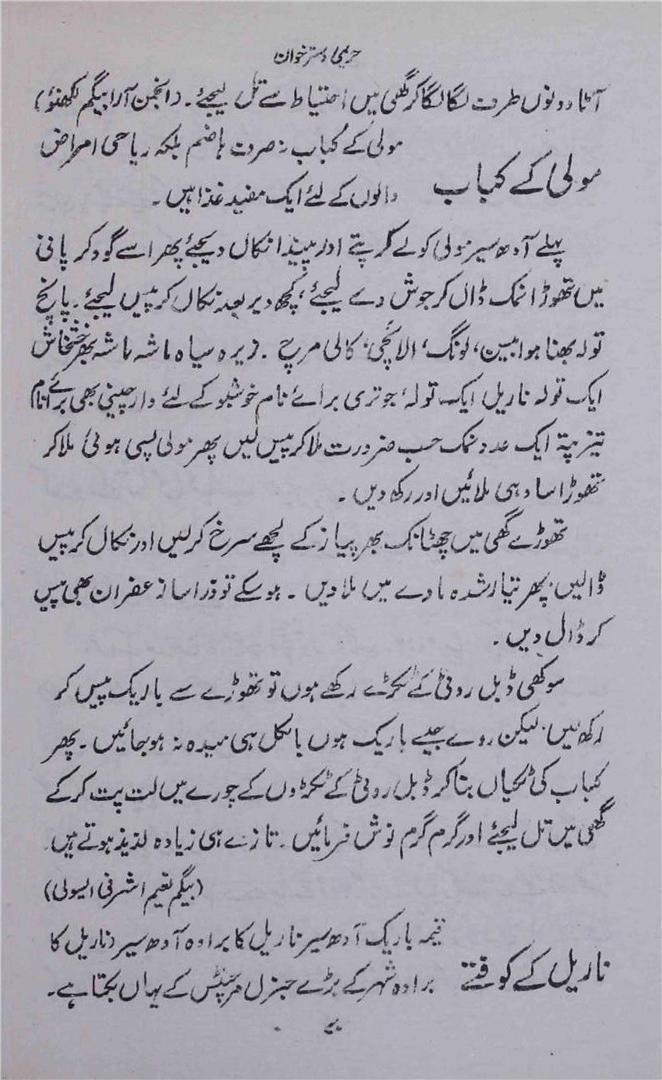 حریمی دسترخوان
آٹا دونوں طرف لگا لگا کر گھی میں احتیاط سے تل لیجئے۔ (انجمن آرا بیگم لکھنؤ)
مولی کے کباب
مولی کے کباب نہ صرف ہاضم بلکہ ریاحی امراض
والوں کے لئے ایک مفید غذا ہیں۔
پہلے آدھ سیر مولی کو لے کر پتے اور پیندا نکال دیجئے پھر اسے گود کر پانی
میں تھوڑا نمک ڈال کر جوش دے لیجئے، کچھ دیر بعد نکال کر پیس لیجئے۔ پانچ
تولہ بھنا ہوا بیسن، لونگ، الائچی، کالی مرچ۔ زیرہ سیاہ ماشہ ماشہ بھر خشخاش
ایک تولہ ناریل ایک تولہ، جوتری برائے نام خوشبو کے لئے دارچینی بھی برائے نام
تیزپتہ ایک عدد نمک حسب ضرورت ملا کر پیس لیں پھر مولی پسی ہوئی ملا کر
تھوڑا سا دہی ملائیں اور رکھ دیں۔
تھوڑے گھی میں چھٹانک بھر پیاز کے لچھے سرخ کر لیں اور نکال کر پیس
ڈالیں، پھر تیار شدہ مادے میں ملا دیں۔ ہو سکے تو ذرا سا زعفران بھی پیس
کر ڈال دیں۔
سوکھی ڈبل روٹی کے ٹکڑے رکھے ہوں تو تھوڑے سے باریک پیس کر
رکھ لیں، لیکن روے جیسے باریک ہوں بالکل ہی میدہ نہ ہو جائیں۔ پھر
کباب کی ٹکیاں بنا کر ڈبل روٹی کے ٹکڑوں کے چورے میں لت پت کر کے
گھی میں تل لیجئے اور گرم گرم نوش فرمائیں۔ تازے ہی زیادہ لذیذ ہوتے ہیں۔
(بیگم نعیم اشرفی الیولی)
ناریل کے کوفتے
قیمہ باریک آدھ سیر ناریل کا برادہ آدھ سیر (ناریل کا
برادہ شہر کے بڑے جنرل مرچنٹس کے یہاں بکتا ہے۔